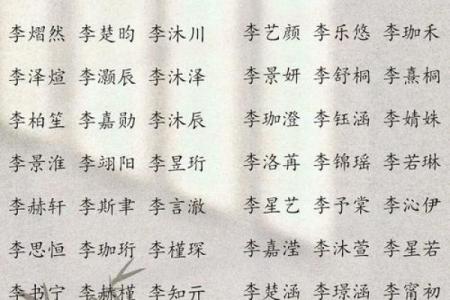 李熠然 李楚昀 李沐川 李艺颜 李乐悠 李珈禾
李泽煊 李灏辰 李沐泽 李景妍 李舒桐 李熹桐
李柏笙 李嘉勋 李沐辰 李珈澄 李钰涵 李婧姝
李景淮 李翊阳 李昱珩 李洛苒 李锦瑶 李若琳
李赫轩 李斯聿 李言澈 李星艺 李予棠 李沁伊
李思恒 李珈珩 李槿琛 李嘉滢 李沐萱 李星若
李书宁 李赫槿 李知元 李楚涵 李璟涵 李甯初